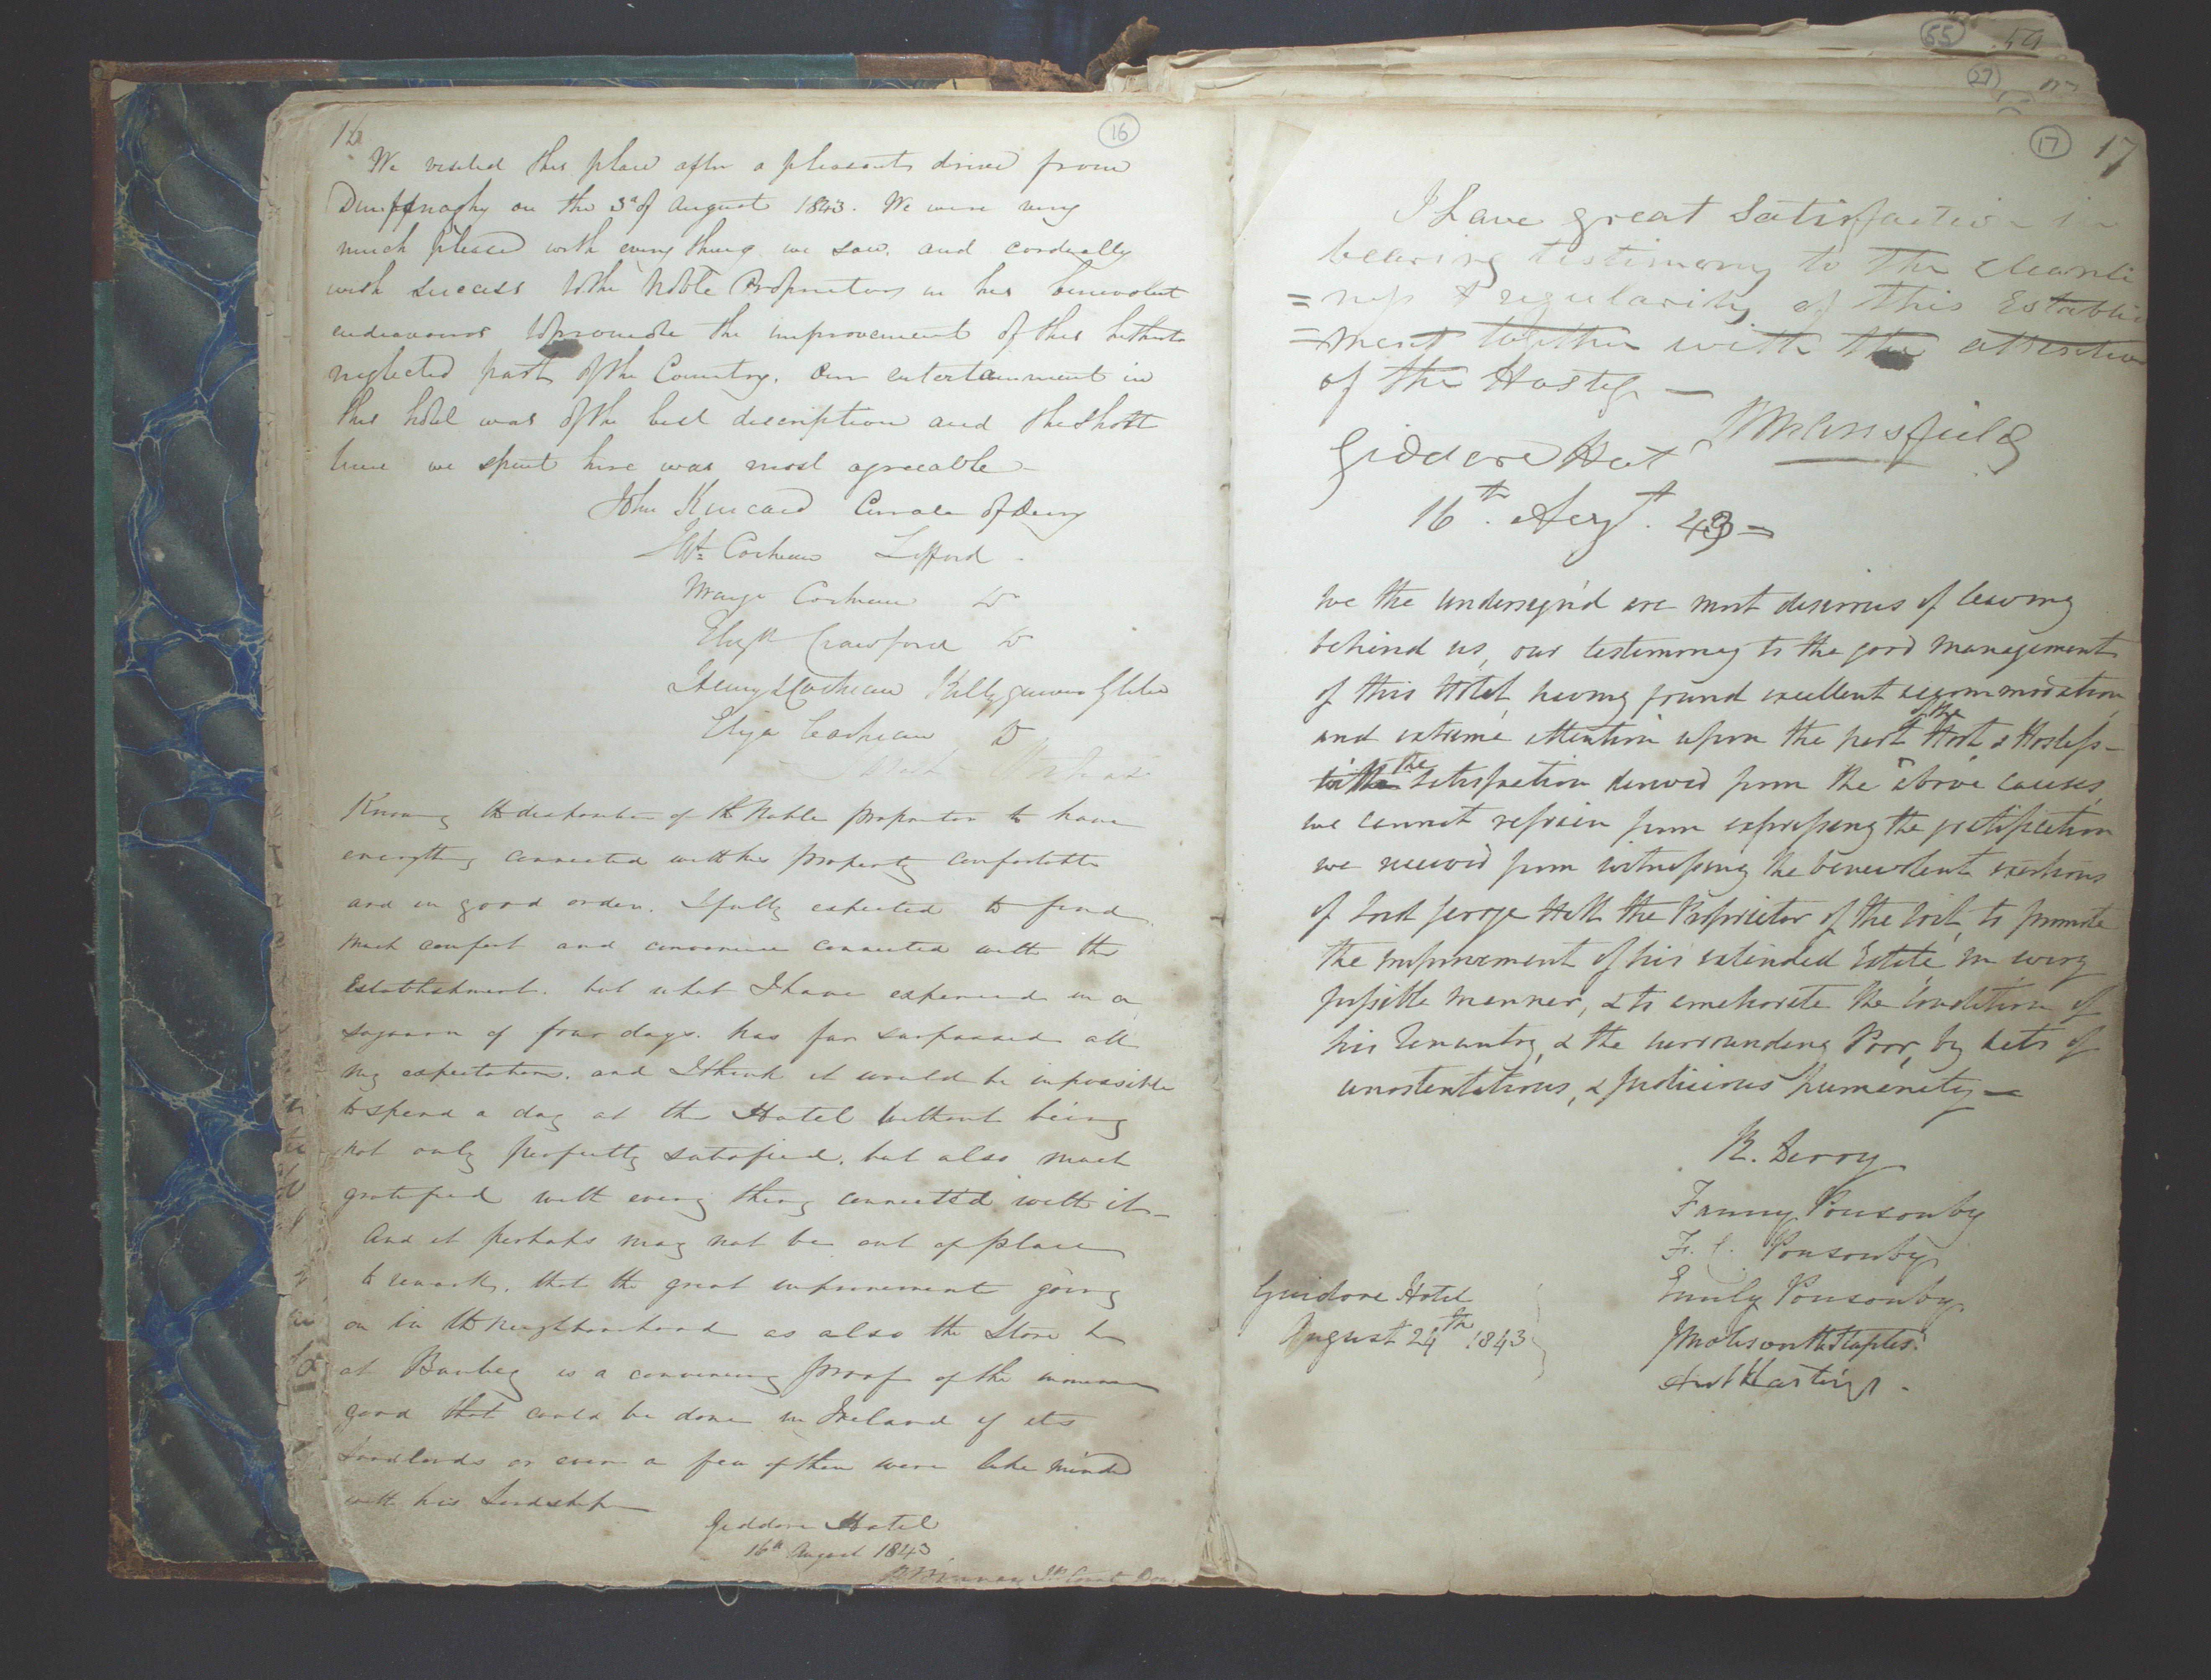 16
16
We visited this place after a pleasant drive from
Dunffnaghy on the 3d of August 1843. We were very
much pleased with every thing we saw, and cordially
wish success to the Noble Proprietor in his benevolent
endeavours to promote the improvement of this hitherto
neglected part of the Country. Our entertainment in
this hotel was of the best description and the short
time we spent here was most agreeable
John Kincaid Curate of Derry
Wm Cochran Lifford
Margt Cochran Do
Elizth Crawford Do
Henry Cochran Killygarvan Glebe
Eliza Cochran Do
Knowing the disposition of the Noble proprietor to have
everything connected with his property comfortable
and in good order. I fully expected to find
much comfort and convenience connected with the
Establishment. but what I have experienced in a
sojourn of four days. has far surpassed all
my expectations. and I think it would be impossible
to spend a day at the Hotel without being
not only perfectly satisfied. but also much
gratified with every thing connected with it
And it perhaps may not be out of place
to remark. that the great improvement going
on in the neighbourhood as also the Store &c
at Bunbeg is a convincing proof of the immense
good that could be done in Ireland if its
Landlords or even a few of them were like minded
with his Lordship
Geddore Hotel
16th August 1843
55
27
17
17
I have great Satisfaction in
bearing testimony to the cleanli
=ness & regularity of this Establi
=ment together with the attention
of the Hostess —
Mansfield
Giddore Hotl
16th. Augt. 43 =
We the undersign'd are most desirous of leaving
behind us, our testimony to the good management
of this Hotel, having found excellent accommodation,
and extreme attention upon the part of the Host & Hostess—
the satisfaction derived from the above causes,
we cannot refrain from expressing the gratification
we received from witnessing the benevolent exertions
of Lord George Hill the Proprietor of the soil, to promote
the improvement of his extended Estate in every
possible manner, & to ameliorate the Condition of
his Tenantry, & the surrounding Poor, by acts of
unostentatious, & judicious humanity —
R. Derry
Fanny Ponsonby
F. C. Ponsonby
Emily Ponsonby
Molesworth Staples
Hastings.
Guidore Hotel
August 24th 1843